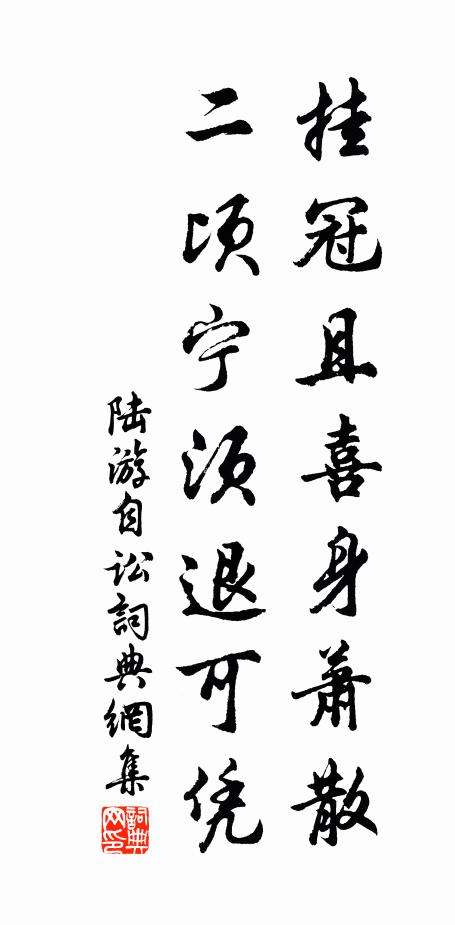 挂冠且喜身萧散
二顷宁须退可凭
陆游自讼詞典網集
詞典网印